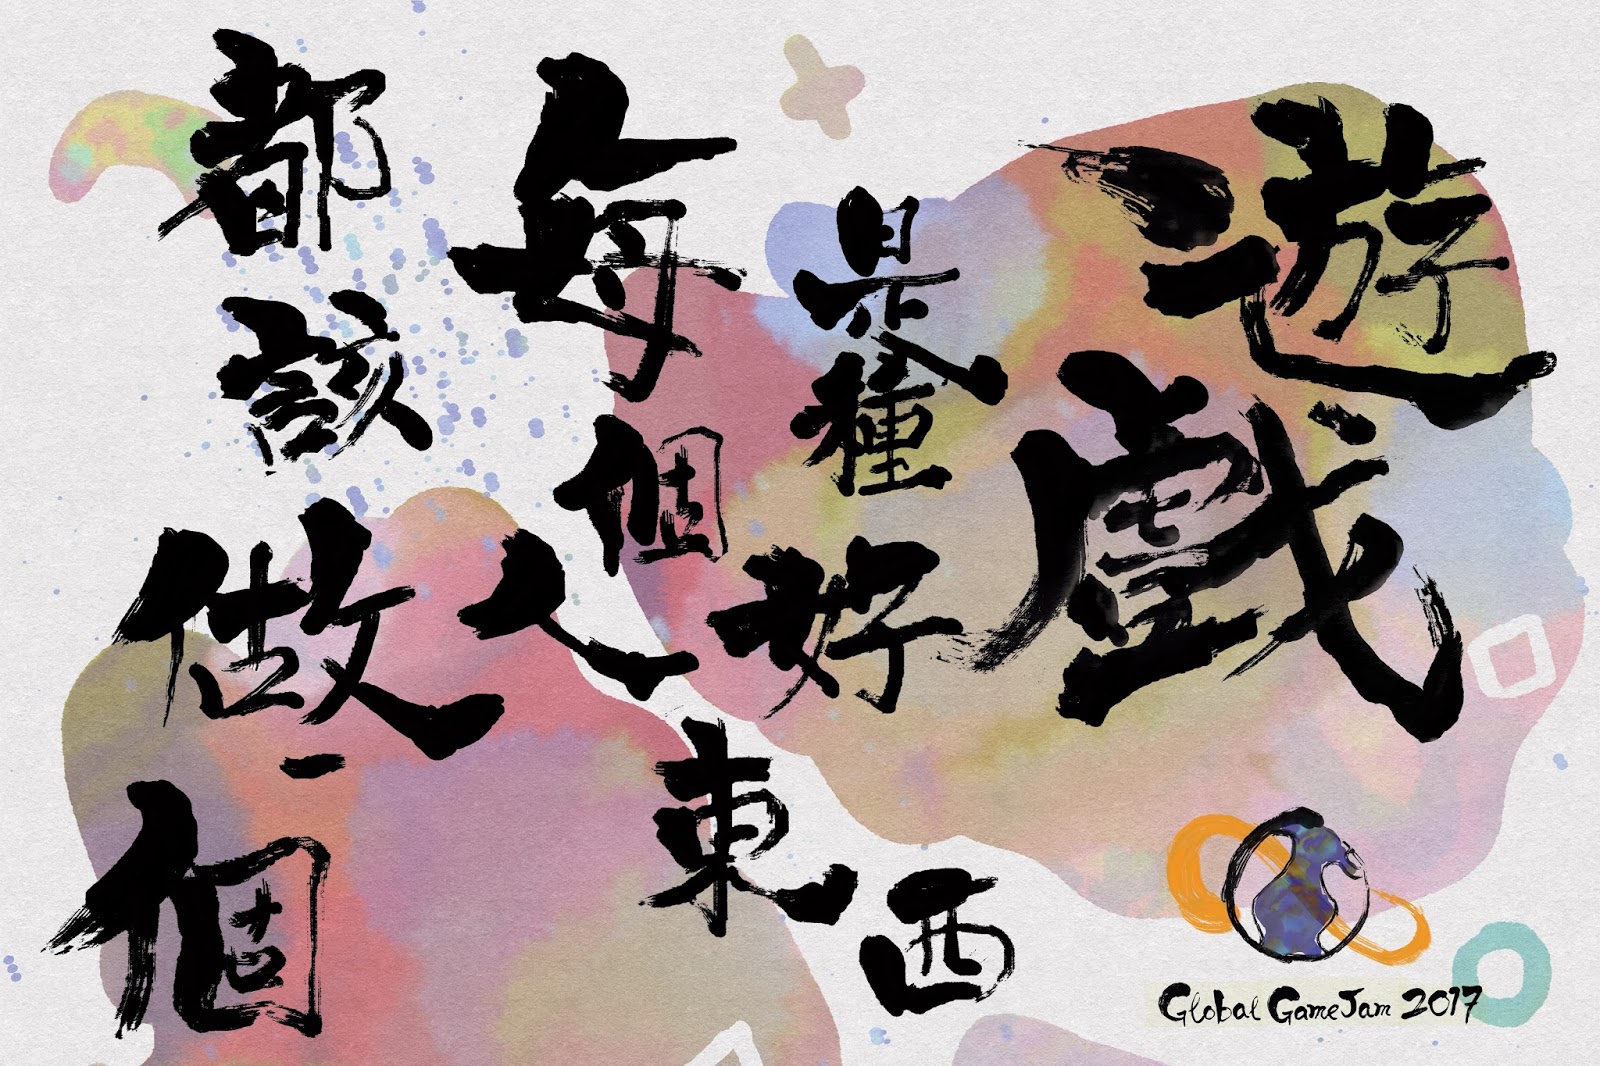 遊戲
是種好東西
每個人
都該做一個
Global GameJam 2017